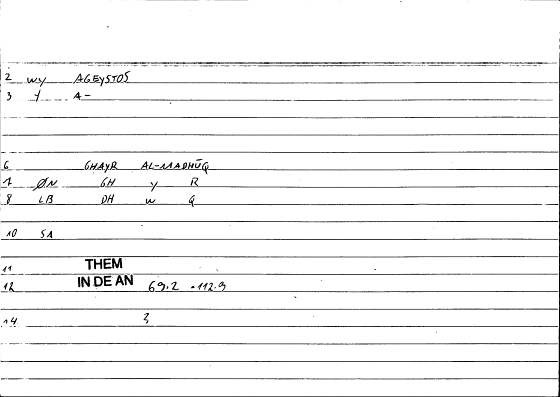 2 wy AGEYSTOS
3 y A-
6 GHAYR AL-MADHŪQ
7 ØN GH y R
8 LB DH w Q
10 SA
11 THEM
12 IN DE AN 69.2 -112.9
14 3